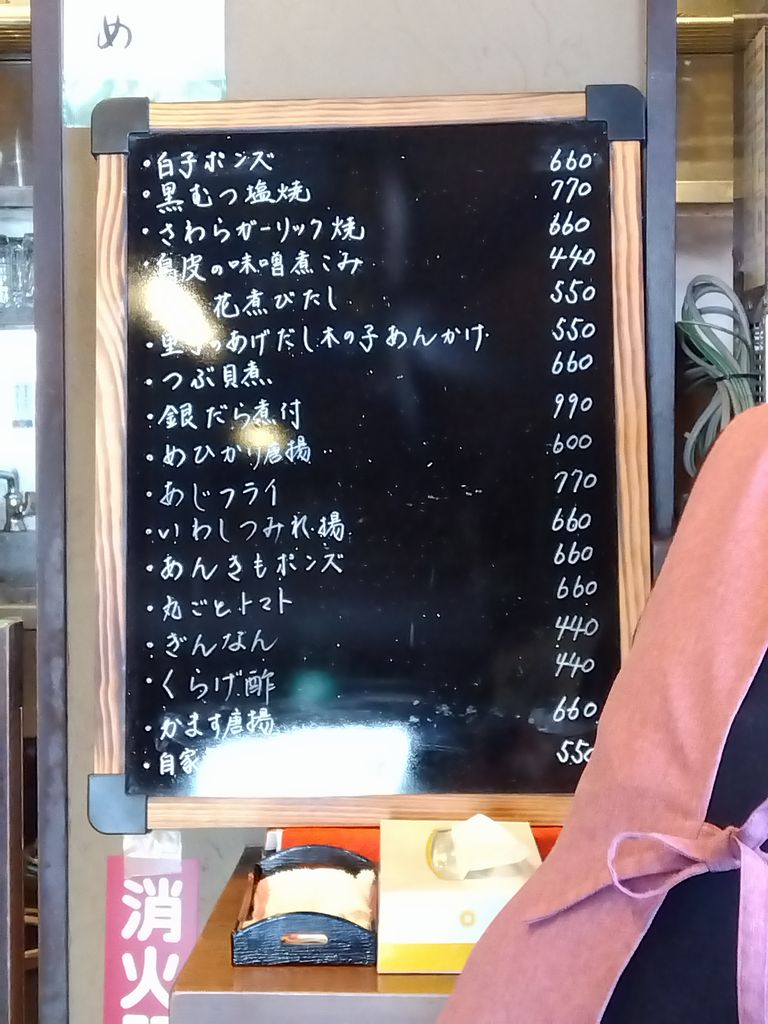 め
・白子ポンズ 660
・黒むつ塩焼 770
・さわらガーリック焼 660
皮の味噌煮こみ 440
花煮びたし 550
・里 のあげだし木の子あんかけ 550
・つぶ貝煮 660
・銀だら煮付 990
・めひかり唐揚 600
・あじフライ 770
・いわしつみれ揚 660
・あんきもポンズ 660
・丸ごとトマト 660
・ぎんなん 440
・くらげ酢 440
・かます唐揚 660
・自家 550
消火